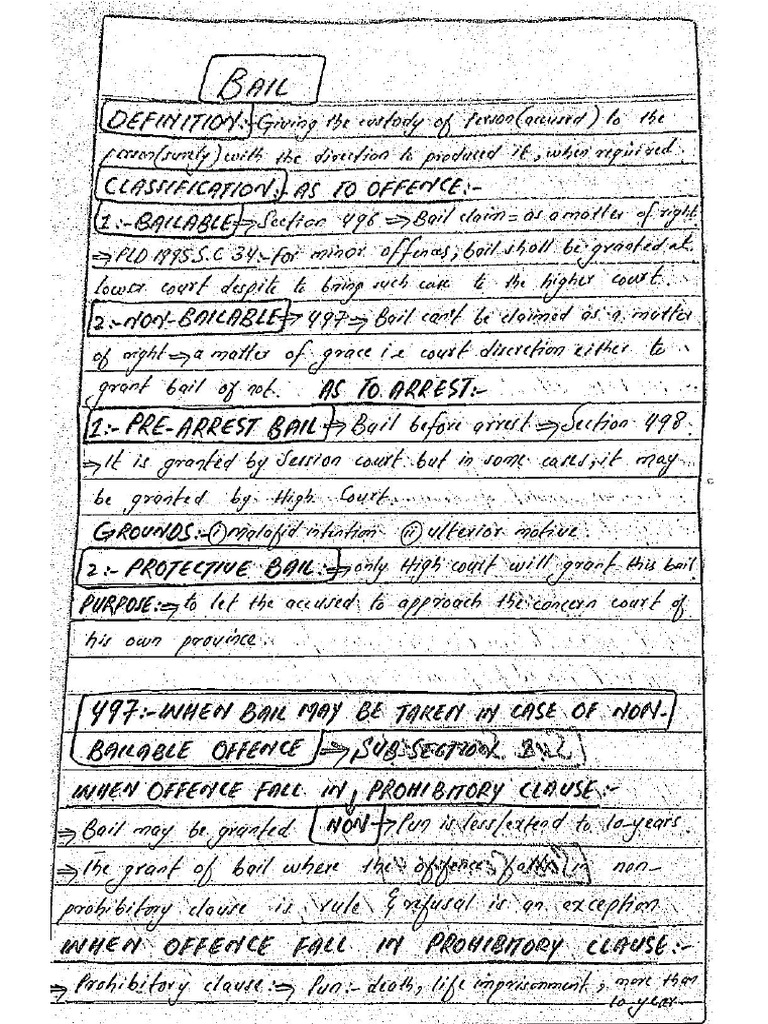 BAIL
DEFINITION:- Giving the custody of Person (accused) to the
person (surety) with the direction to produced it, when required.
CLASSIFICATION:- AS TO OFFENCE:-
1:- BAILABLE ⇒ Section 496 ⇒ Bail claim = as a matter of right
⇒ PLD 1995 S.C 34:- for minor offences, bail shall be granted at
lower court despite to bring such case to the higher court.
2:- NON-BAILABLE ⇒ 497 ⇒ Bail can't be claimed as a matter
of right ⇒ a matter of grace i.e court discretion either to
grant bail of not. AS TO ARREST:-
1:- PRE-ARREST BAIL ⇒ Bail before arrest ⇒ Section 498.
⇒ It is granted by Session court but in some cases, it may
be granted by High Court.
GROUNDS:- (i) malafid intention (ii) ulterior motive
2:- PROTECTIVE BAIL:- ⇒ only High court will grant this bail
PURPOSE:⇒ to let the accused to approach the concern court of
his own province.
497:- WHEN BAIL MAY BE TAKEN IN CASE OF NON-
BAILABLE OFFENCE ⇒ SUB-SECTION
WHEN OFFENCE FALL IN PROHIBITORY CLAUSE:-
⇒ Bail may be granted NON ⇒ Pun is less/extend to 10-years.
⇒ The grant of bail where the offence falls in non-
prohibitory clause is rule & refusal is an exception
WHEN OFFENCE FALL IN PROHIBITORY CLAUSE:-
⇒ Prohibitory clause:⇒ Pun:- death, life imprisonment, more than
10-year